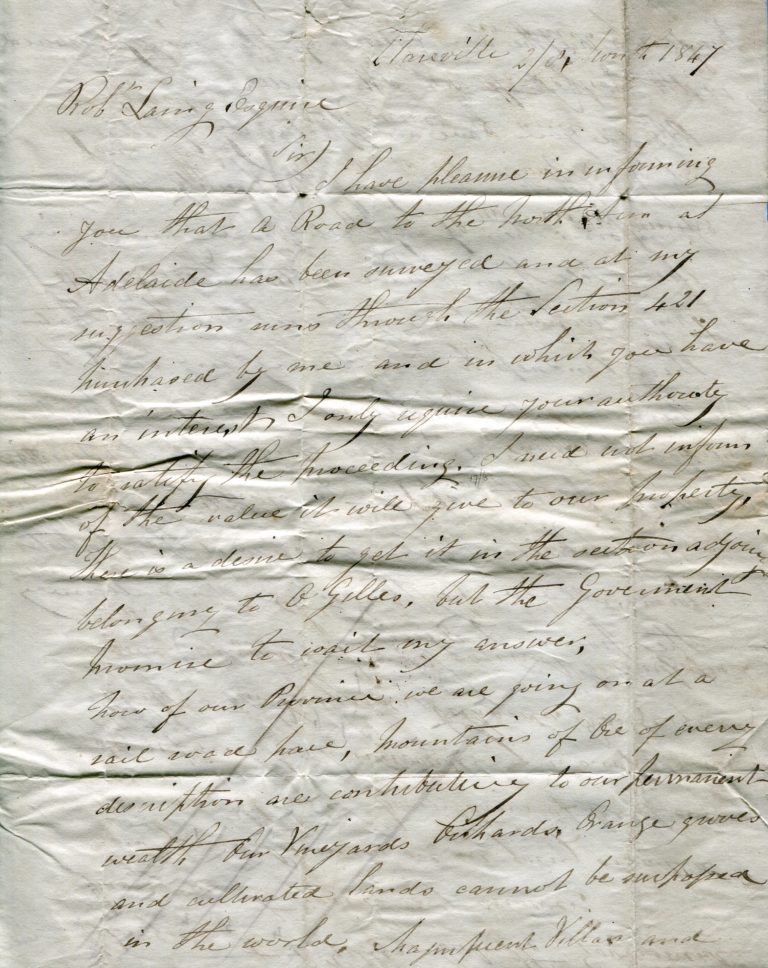 2/3, Month 1847
Robt. Laing Esquire
Sir)
I have pleasure in informing
you that a Road to the North Arm at
Adelaide has been surveyed and at my
suggestion runs through the Section 421
purchased by me and in which you have
an interest, I only require your authority
to ratify the proceeding. I need not inform
of the value it will give to our property,
there is a desire to get it in the section adjoing
belonging to O Gilles, but the Government
promise to wait my answer,
now of our Province we are going on at a
rail road pace, Mountains of Ore of every
description are contributing to our permanent
wealth Our Vineyards Orchards, Orange groves
and cultivated lands cannot be surpassed
in the world. Magnificent Villas and